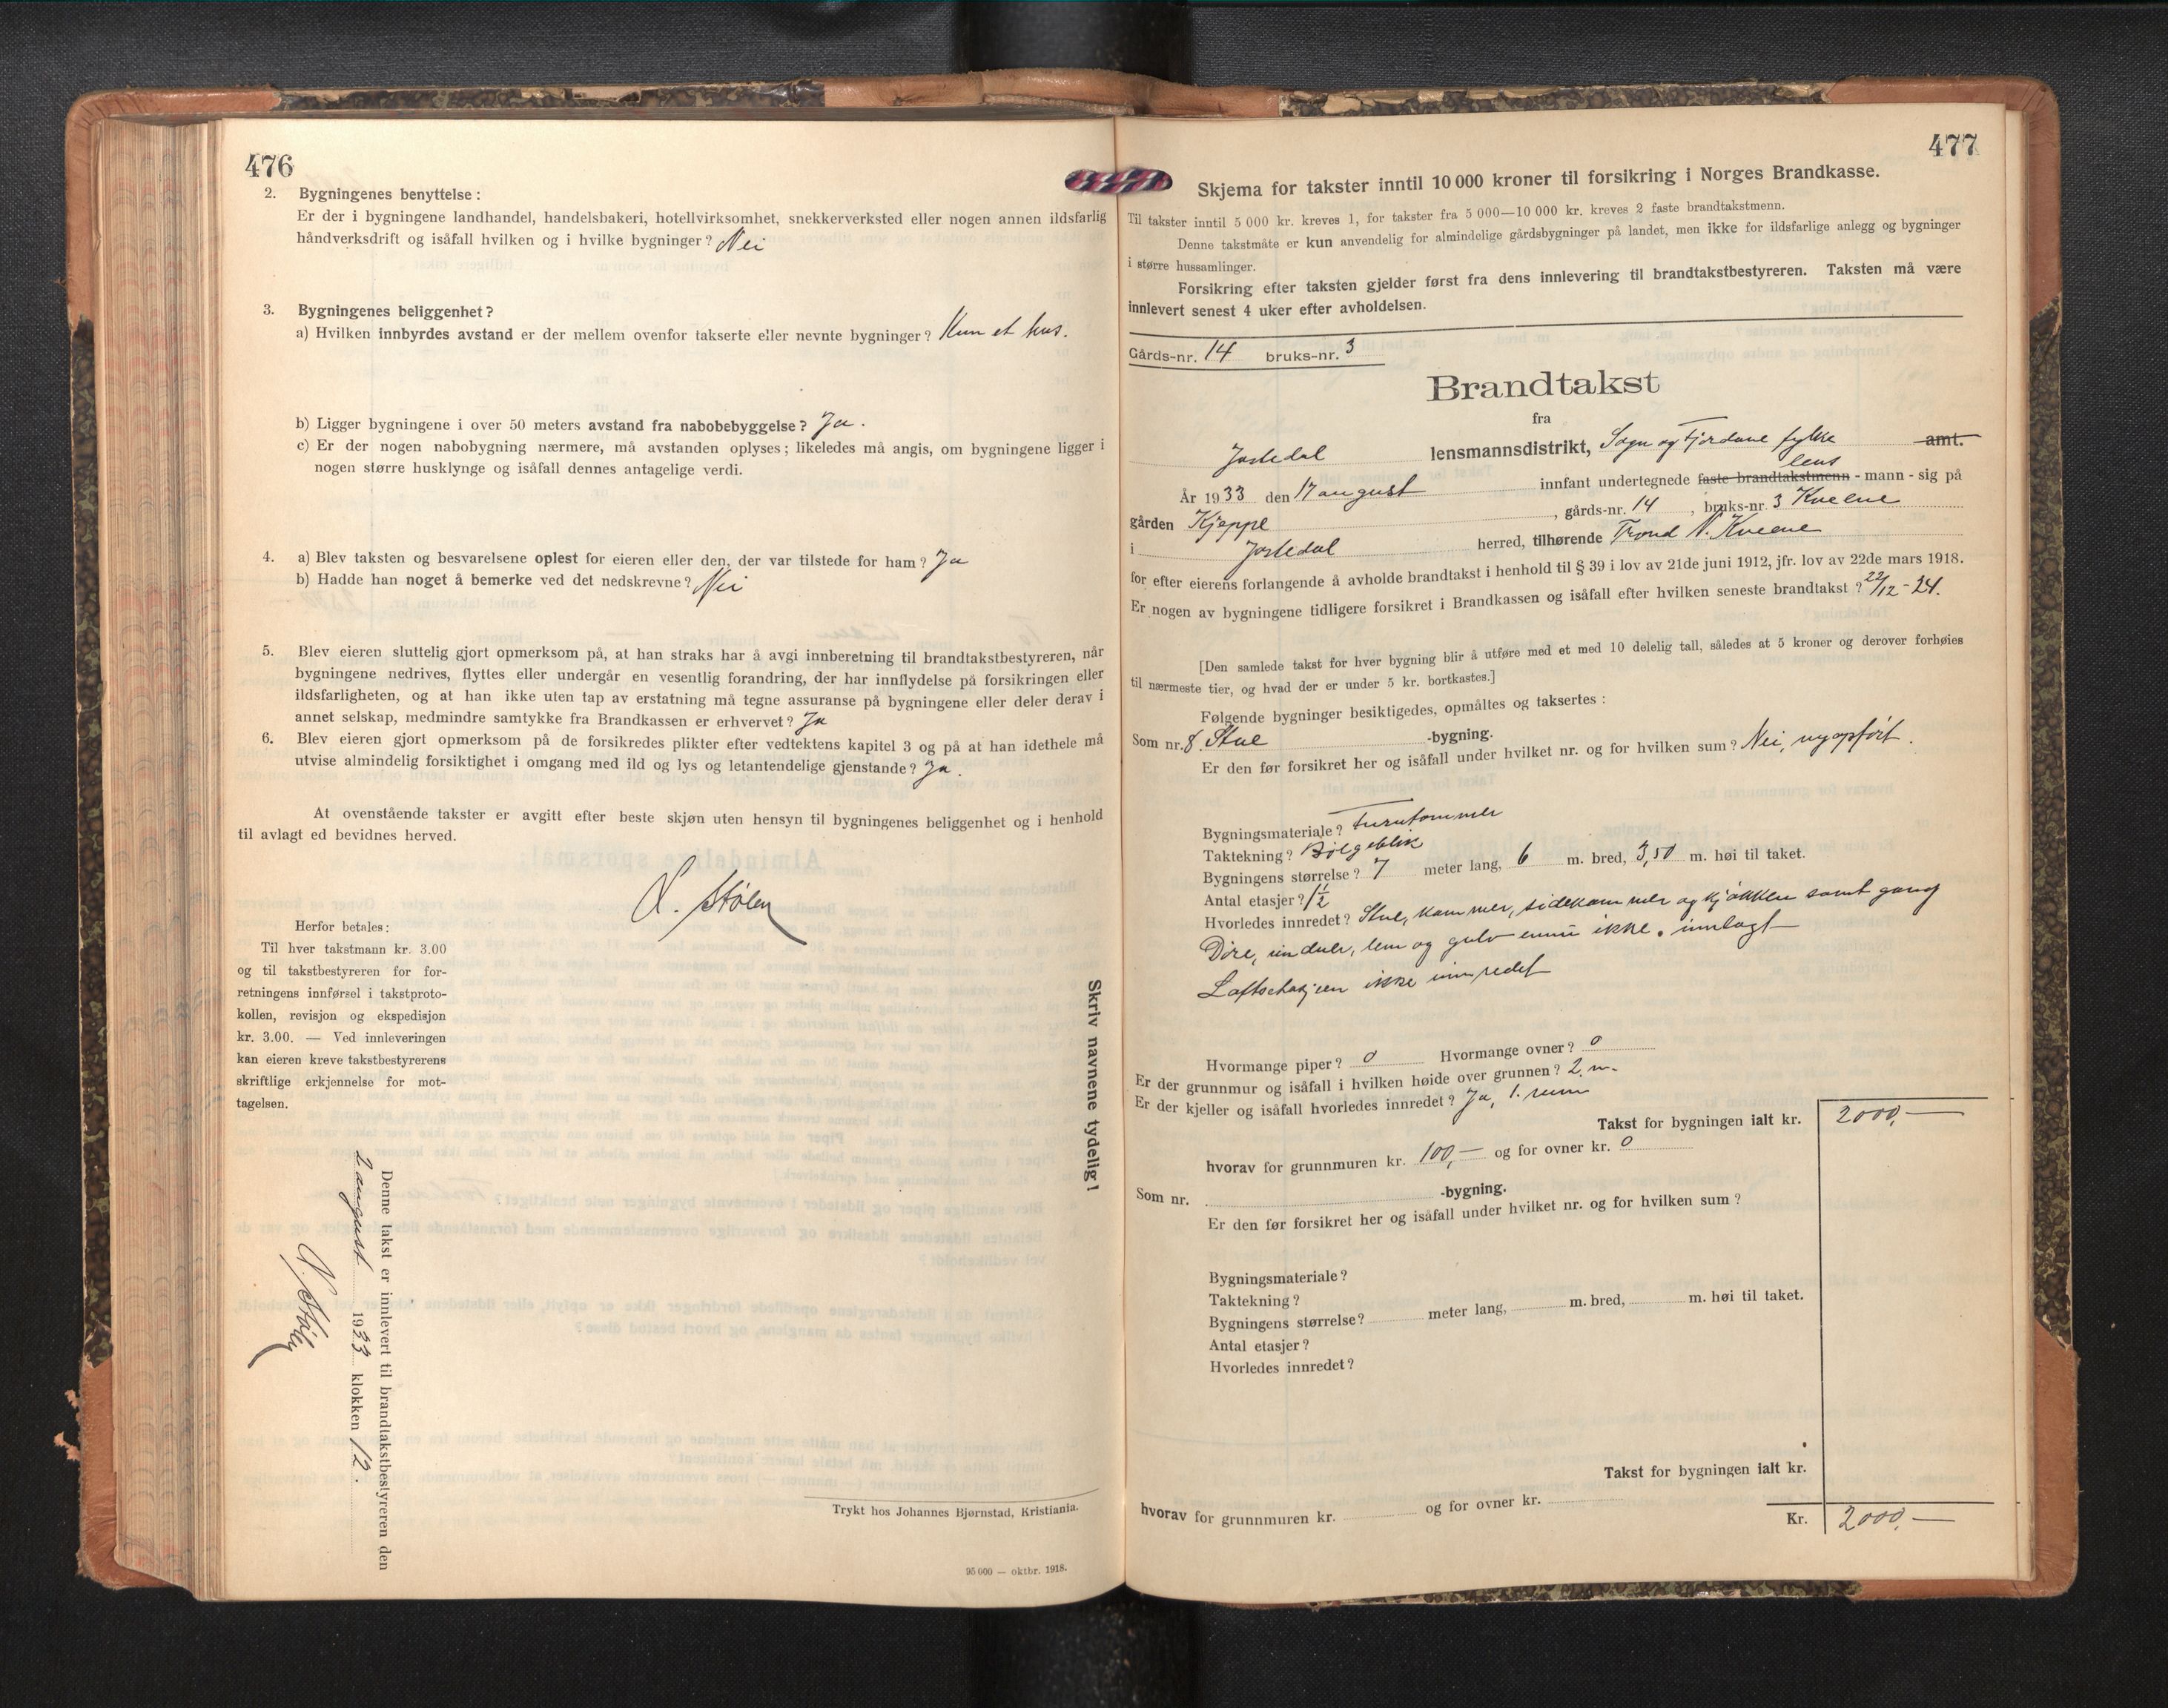 476
2. Bygningenes benyttelse:
Er der i bygningene landhandel, handelsbakeri, hotellvirksomhet, snekkerverksted eller nogen annen ildsfarlig
håndverksdrift og isåfall hvilken og i hvilke bygninger? Nei
3. Bygningenes beliggenhet?
a) Hvilken innbyrdes avstand er der mellem ovenfor takserte eller nevnte bygninger? Kun et hus.
b) Ligger bygningene i over 50 meters avstand fra nabobebyggelse? Ja.
c) Er der nogen nabobygning nærmere, må avstanden oplyses; likeledes må angis, om bygningene ligger i
nogen større husklynge og isåfall dennes antagelige verdi.
4. a) Blev taksten og besvarelsene oplest for eieren eller den, der var tilstede for ham? Ja
b) Hadde han noget å bemerke ved det nedskrevne? Nei
5. Blev eieren sluttelig gjort opmerksom på, at han straks har å avgi innberetning til brandtakstbestyreren, når
bygningene nedrives, flyttes eller undergår en vesentlig forandring, der har innflydelse på forsikringen eller
ildsfarligheten, og at han ikke uten tap av erstatning må tegne assuranse på bygningene eller deler derav i
annet selskap, medmindre samtykke fra Brandkassen er erhvervet? Ja
6. Blev eieren gjort opmerksom på de forsikredes plikter efter vedtektens kapitel 3 og på at han idethele må
utvise almindelig forsiktighet i omgang med ild og lys og letantendelige gjenstande? Ja.
At ovenstående takster er avgitt efter beste skjøn uten hensyn til bygningenes beliggenhet og i henhold
til avlagt ed bevidnes herved.
L. Stølen
Herfor betales:
Til hver takstmann kr. 3.00
og til takstbestyreren for for-
retningens innførsel i takstproto-
kollen, revisjon og ekspedisjon
kr. 3.00. — Ved innleveringen
kan eieren kreve takstbestyrerens
skriftlige erkjennelse for mot-
tagelsen.
Skriv navnene tydelig!
Denne takst er innlevert til brandtakstbestyreren den
2 august 1933 klokken 12.
Stølen
Trykt hos Johannes Bjørnstad, Kristiania.
95 000 — oktbr. 1918.
477
Skjema for takster inntil 10 000 kroner til forsikring i Norges Brandkasse.
Til takster inntil 5 000 kr. kreves 1, for takster fra 5 000—10 000 kr. kreves 2 faste brandtakstmenn.
Denne takstmåte er kun anvendelig for almindelige gårdsbygninger på landet, men ikke for ildsfarlige anlegg og bygninger
i større hussamlinger.
Forsikring efter taksten gjelder først fra dens innlevering til brandtakstbestyreren. Taksten må være
innlevert senest 4 uker efter avholdelsen.
Gårds-nr. 14 bruks-nr. 3
Brandtakst
fra
Jostedal lensmannsdistrikt, Sogn og Fjordane fylke amt.
lens
År 1933 den 17 august innfant undertegnede faste brandtakstmenn - mann - sig på
gården Kjeppe, gårds-nr. 14, bruks-nr. 3 Kveene
i Jostedal herred, tilhørende Trond N. Kveene
for efter eierens forlangende å avholde brandtakst i henhold til § 39 i lov av 21de juni 1912, jfr. lov av 22de mars 1918.
Er nogen av bygningene tidligere forsikret i Brandkassen og isåfall efter hvilken seneste brandtakst? 22/12-24.
[Den samlede takst for hver bygning blir å utføre med et med 10 delelig tall, således at 5 kroner og derover forhøies
til nærmeste tier, og hvad der er under 5 kr. bortkastes.]
Følgende bygninger besiktigedes, opmåltes og taksertes:
Som nr. 8. Stue -bygning.
Er den før forsikret her og isåfall under hvilket nr. og for hvilken sum? Nei, nyopført.
Bygningsmateriale? Furutømmer
Taktekning? Bølgeblikk
Bygningens størrelse? 7 meter lang, 6 m. bred, 3,50 m. høi til taket.
Antal etasjer? 1½
Hvorledes innredet? Stue, kammer, sidekammer og kjøkken samt gang
Døre, vinduer, lem og gulv ennu ikke innlagt
Loftsetasjen ikke innredet
Hvormange piper? 0 Hvormange ovner? 0
Er der grunnmur og isåfall i hvilken høide over grunnen? 2 m.
Er der kjeller og isåfall hvorledes innredet? Ja, 1. rum
Takst for bygningen ialt kr. 2000,—
hvorav for grunnmuren kr. 100,— og for ovner kr. 0
Som nr. -bygning.
Er den før forsikret her og isåfall under hvilket nr. og for hvilken sum?
Bygningsmateriale?
Taktekning?
Bygningens størrelse? meter lang, m. bred, m. høi til taket.
Antal etasjer?
Hvorledes innredet?
Takst for bygningen ialt kr.
hvorav for grunnmuren kr. og for ovner kr.
Kr. 2000,—